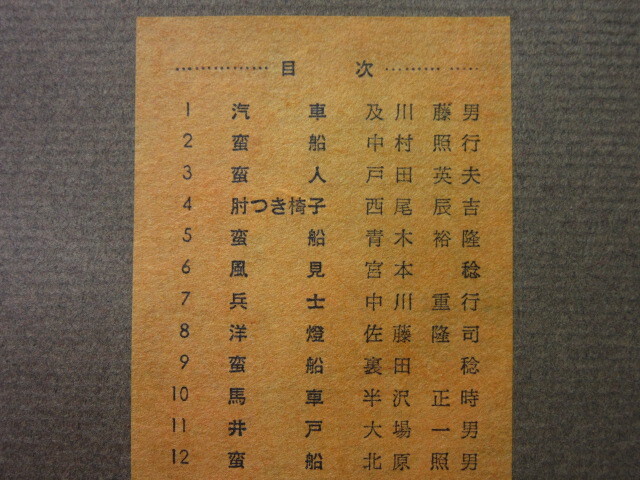 目次
1 汽車 及川藤男
2 蛮船 中村照行
3 蛮人 戸田英夫
4 肘つき椅子 西尾辰吉
5 蛮船 青木裕隆
6 風見 宮本稔
7 兵士 中川重行
8 洋燈 佐藤隆司
9 蛮船 裏田稔
10 馬車 半沢正時
11 井戸 大場一男
12 蛮船 北原照男